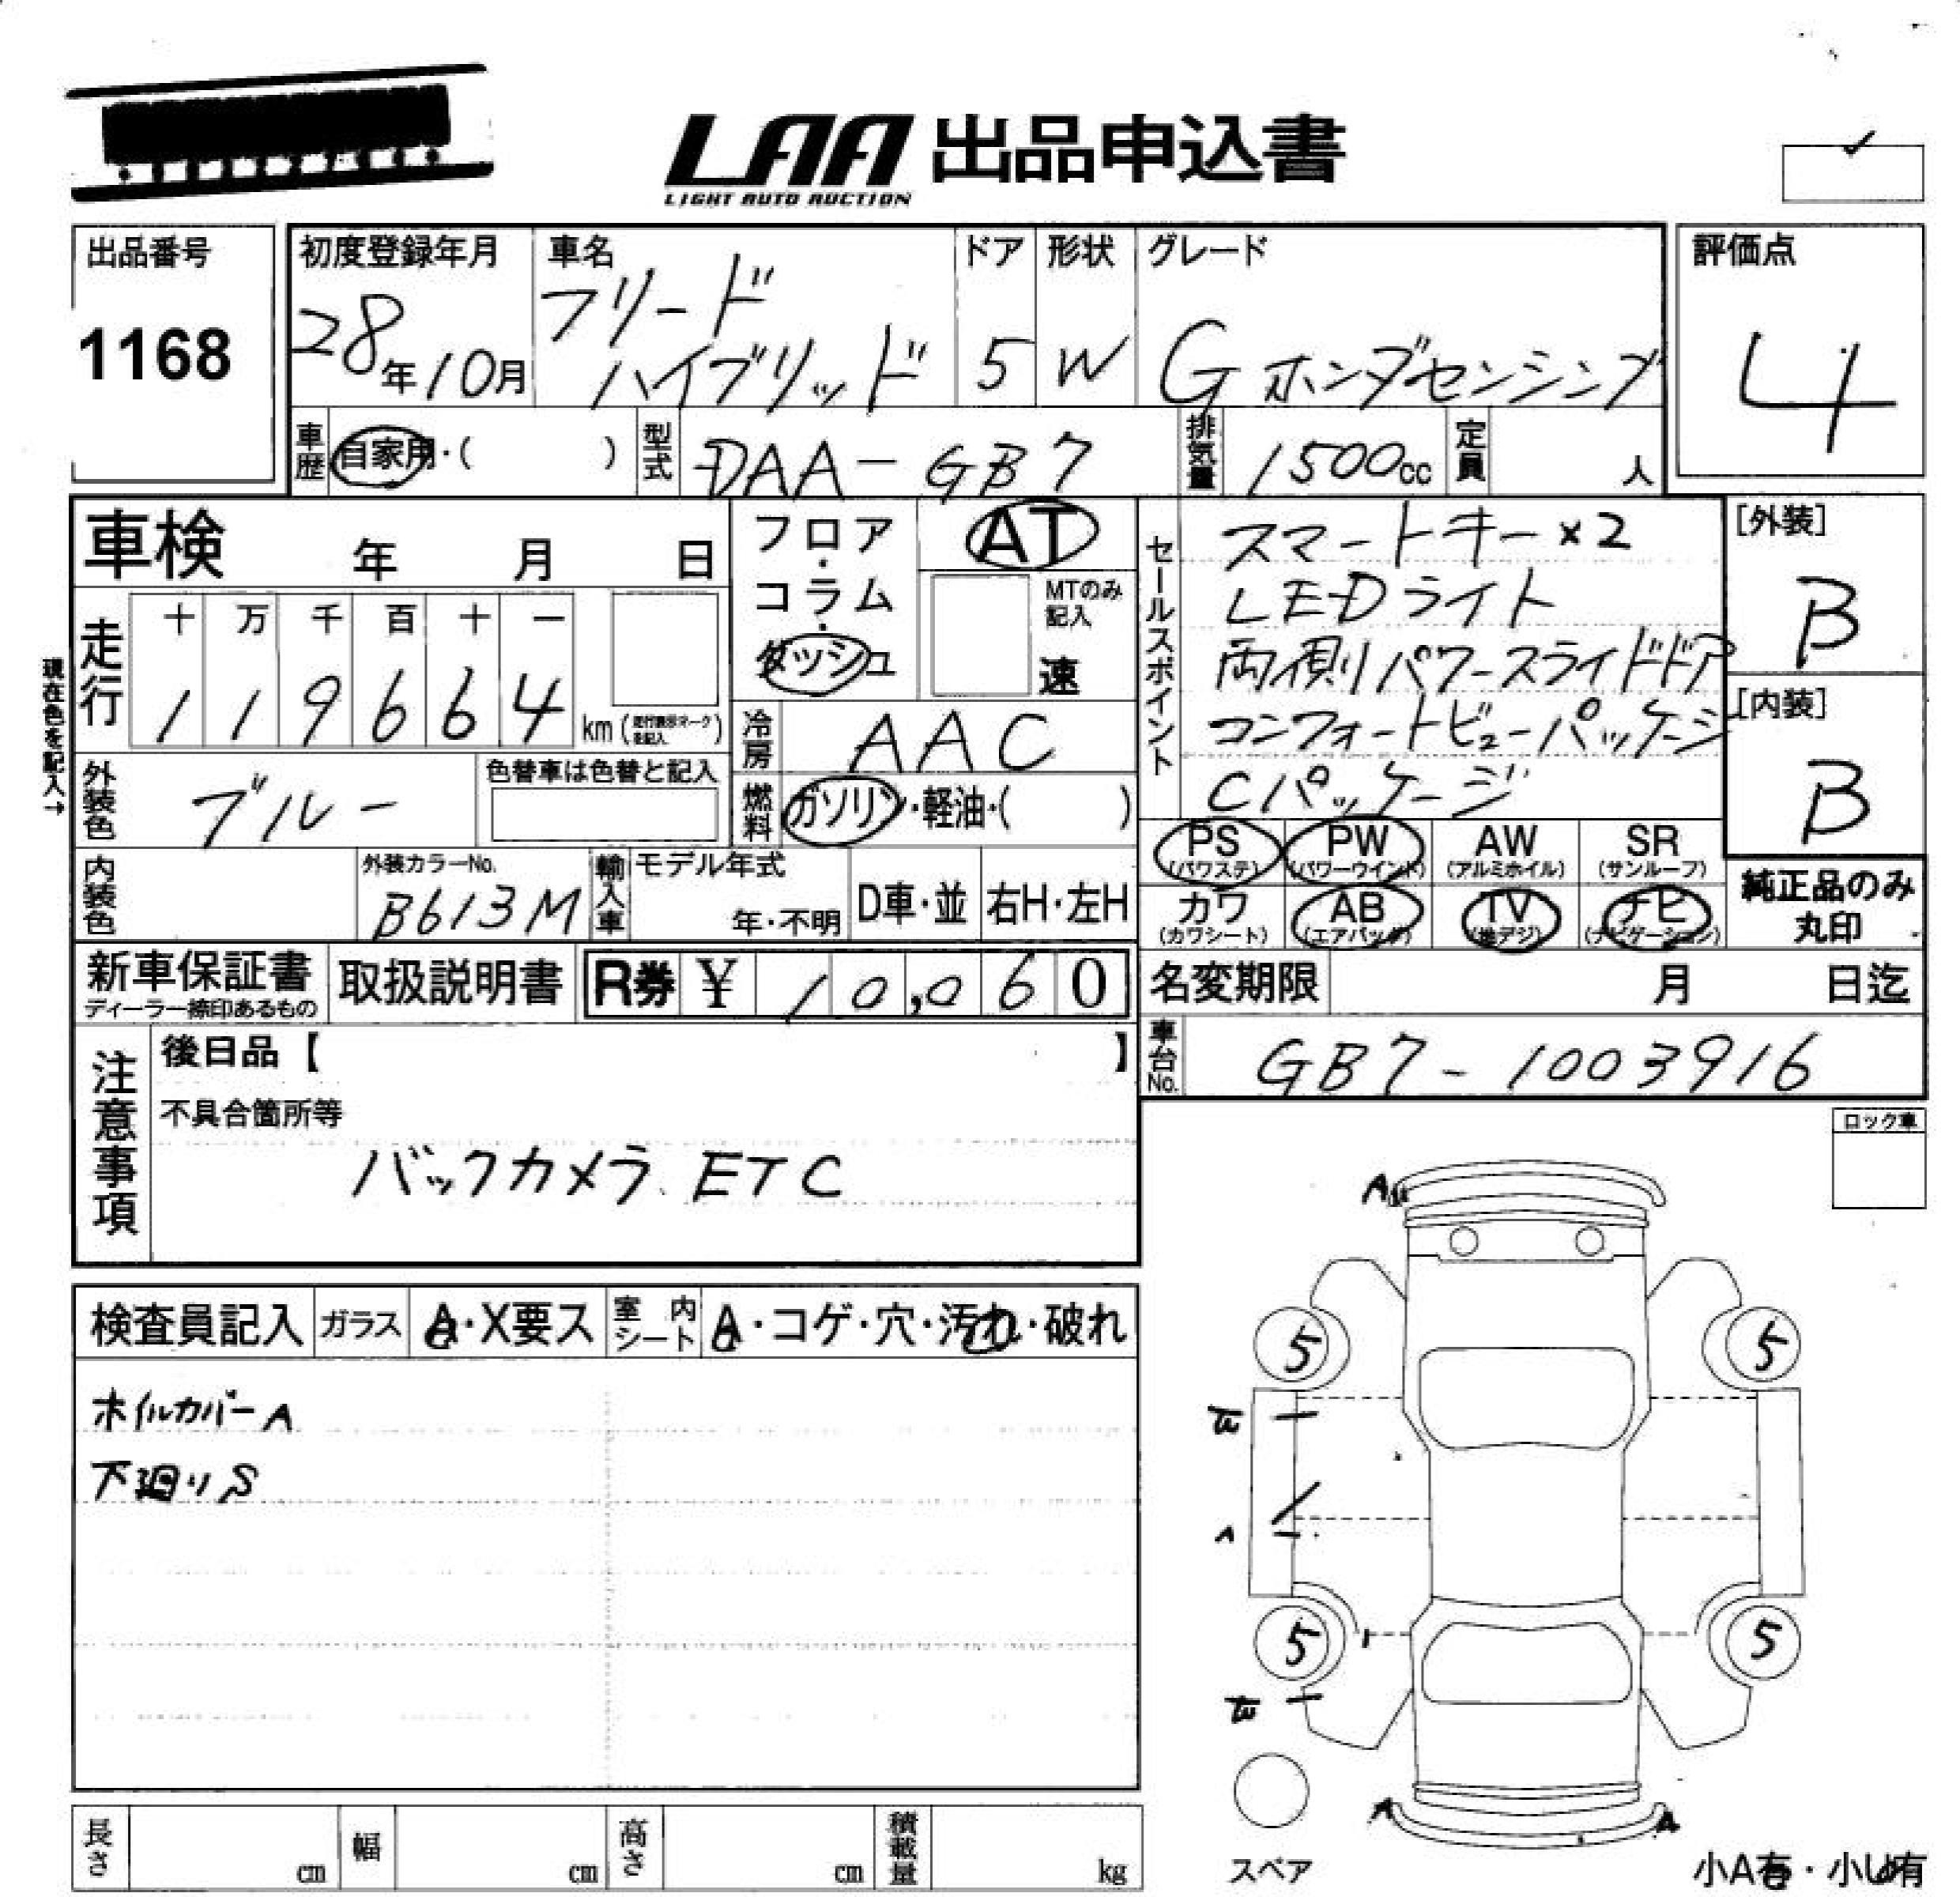 LAA 出品申込書
LIGHT AUTO AUCTION
出品番号
1168
初度登録年月
28年10月
車名
フリード
ハイブリッド
ドア
5
形状
W
グレード
G ホンダセンシング
評価点
4
車歴
自家用・( )
型式
DAA-GB7
排気量
1500cc
定員
人
車検 年 月 日
フロア・コラム・ダッシュ
AT
MTのみ記入
速
現在色を記入→
走行
十 万 千 百 十 一
1 1 9 6 6 4 km (走行表示マークを記入)
冷房
AAC
外装色
ブルー
色替車は色替と記入
燃料
ガソリン・軽油・( )
内装色
外装カラーNo.
B613M
輸入車
モデル年式
年・不明
D車・並
右H・左H
セールスポイント
スマートキー×2
LEDライト
両側パワースライドドア
コンフォートビューパッケージ
Cパッケージ
[外装]
B
[内装]
B
PS (パワステ)
PW (パワーウインド)
AW (アルミホイル)
SR (サンルーフ)
カワ (カワシート)
AB (エアバッグ)
TV (地デジ)
ナビ (ナビゲーション)
純正品のみ
丸印
新車保証書
ディーラー捺印あるもの
取扱説明書
R券 ¥ 10,060
名変期限 月 日迄
車台No.
GB7-1003916
注意事項
後日品【 】
不具合箇所等
バックカメラ. ETC
ロック車
検査員記入
ガラス
A・X要ス
室内シート
A・コゲ・穴・汚れ・破れ
ホイルカバーA
下廻りS
A
5
5
A
5
5
A
A
スペア
小A有・小U有
長さ cm
幅 cm
高さ cm
積載量 kg